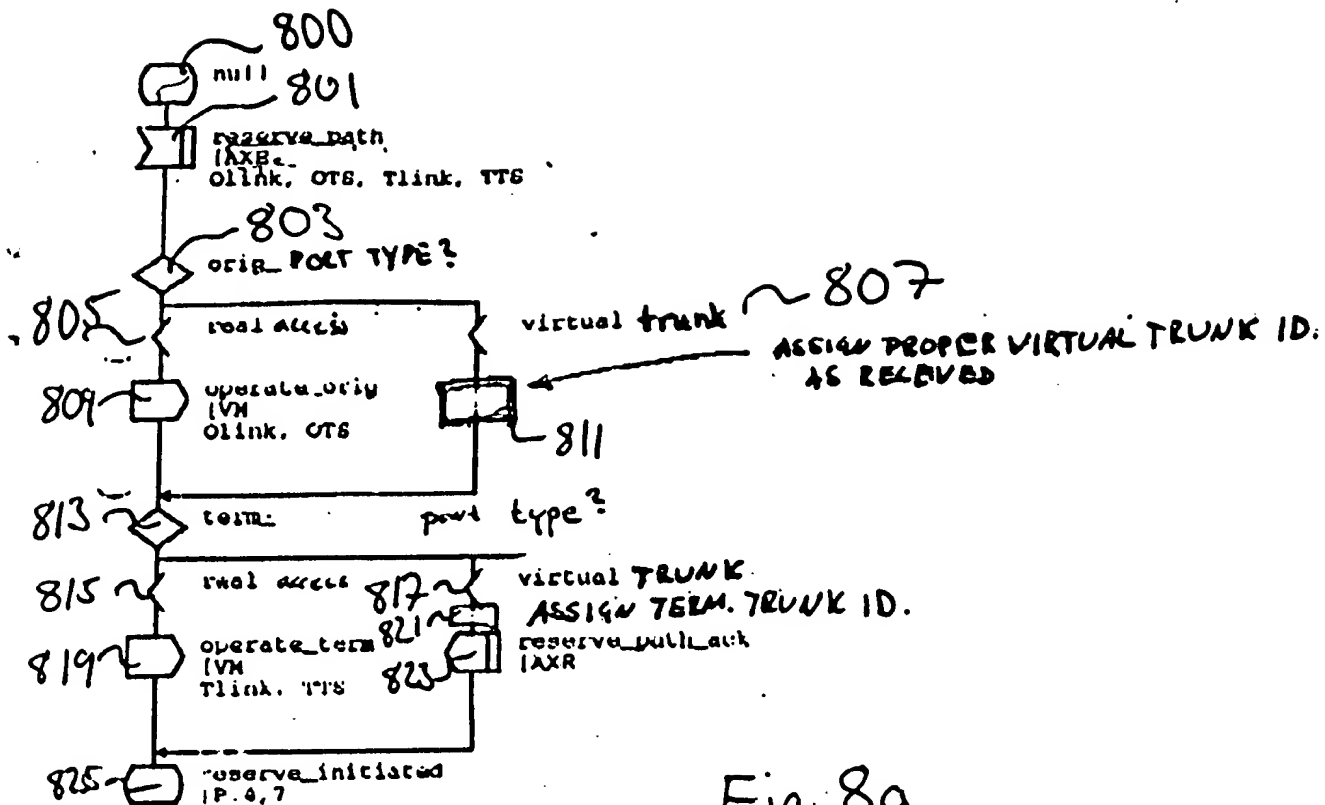 800
null
801
reserve_path
IAXR
Olink, OTS, Tlink, TTS
803
orig_ PORT TYPE?
805
real access
virtual trunk
807
ASSIGN PROPER VIRTUAL TRUNK ID.
AS RECEIVED
809
operate_orig
IVM
Olink, OTS
811
813
term.
port type?
815
real access
817
virtual TRUNK
821
ASSIGN TERM. TRUNK ID.
819
operate_term
IVM
Tlink, TTS
823
reserve_path_ack
IAXR
825
reserve_initiated
IP.4,7
Fig. 8a